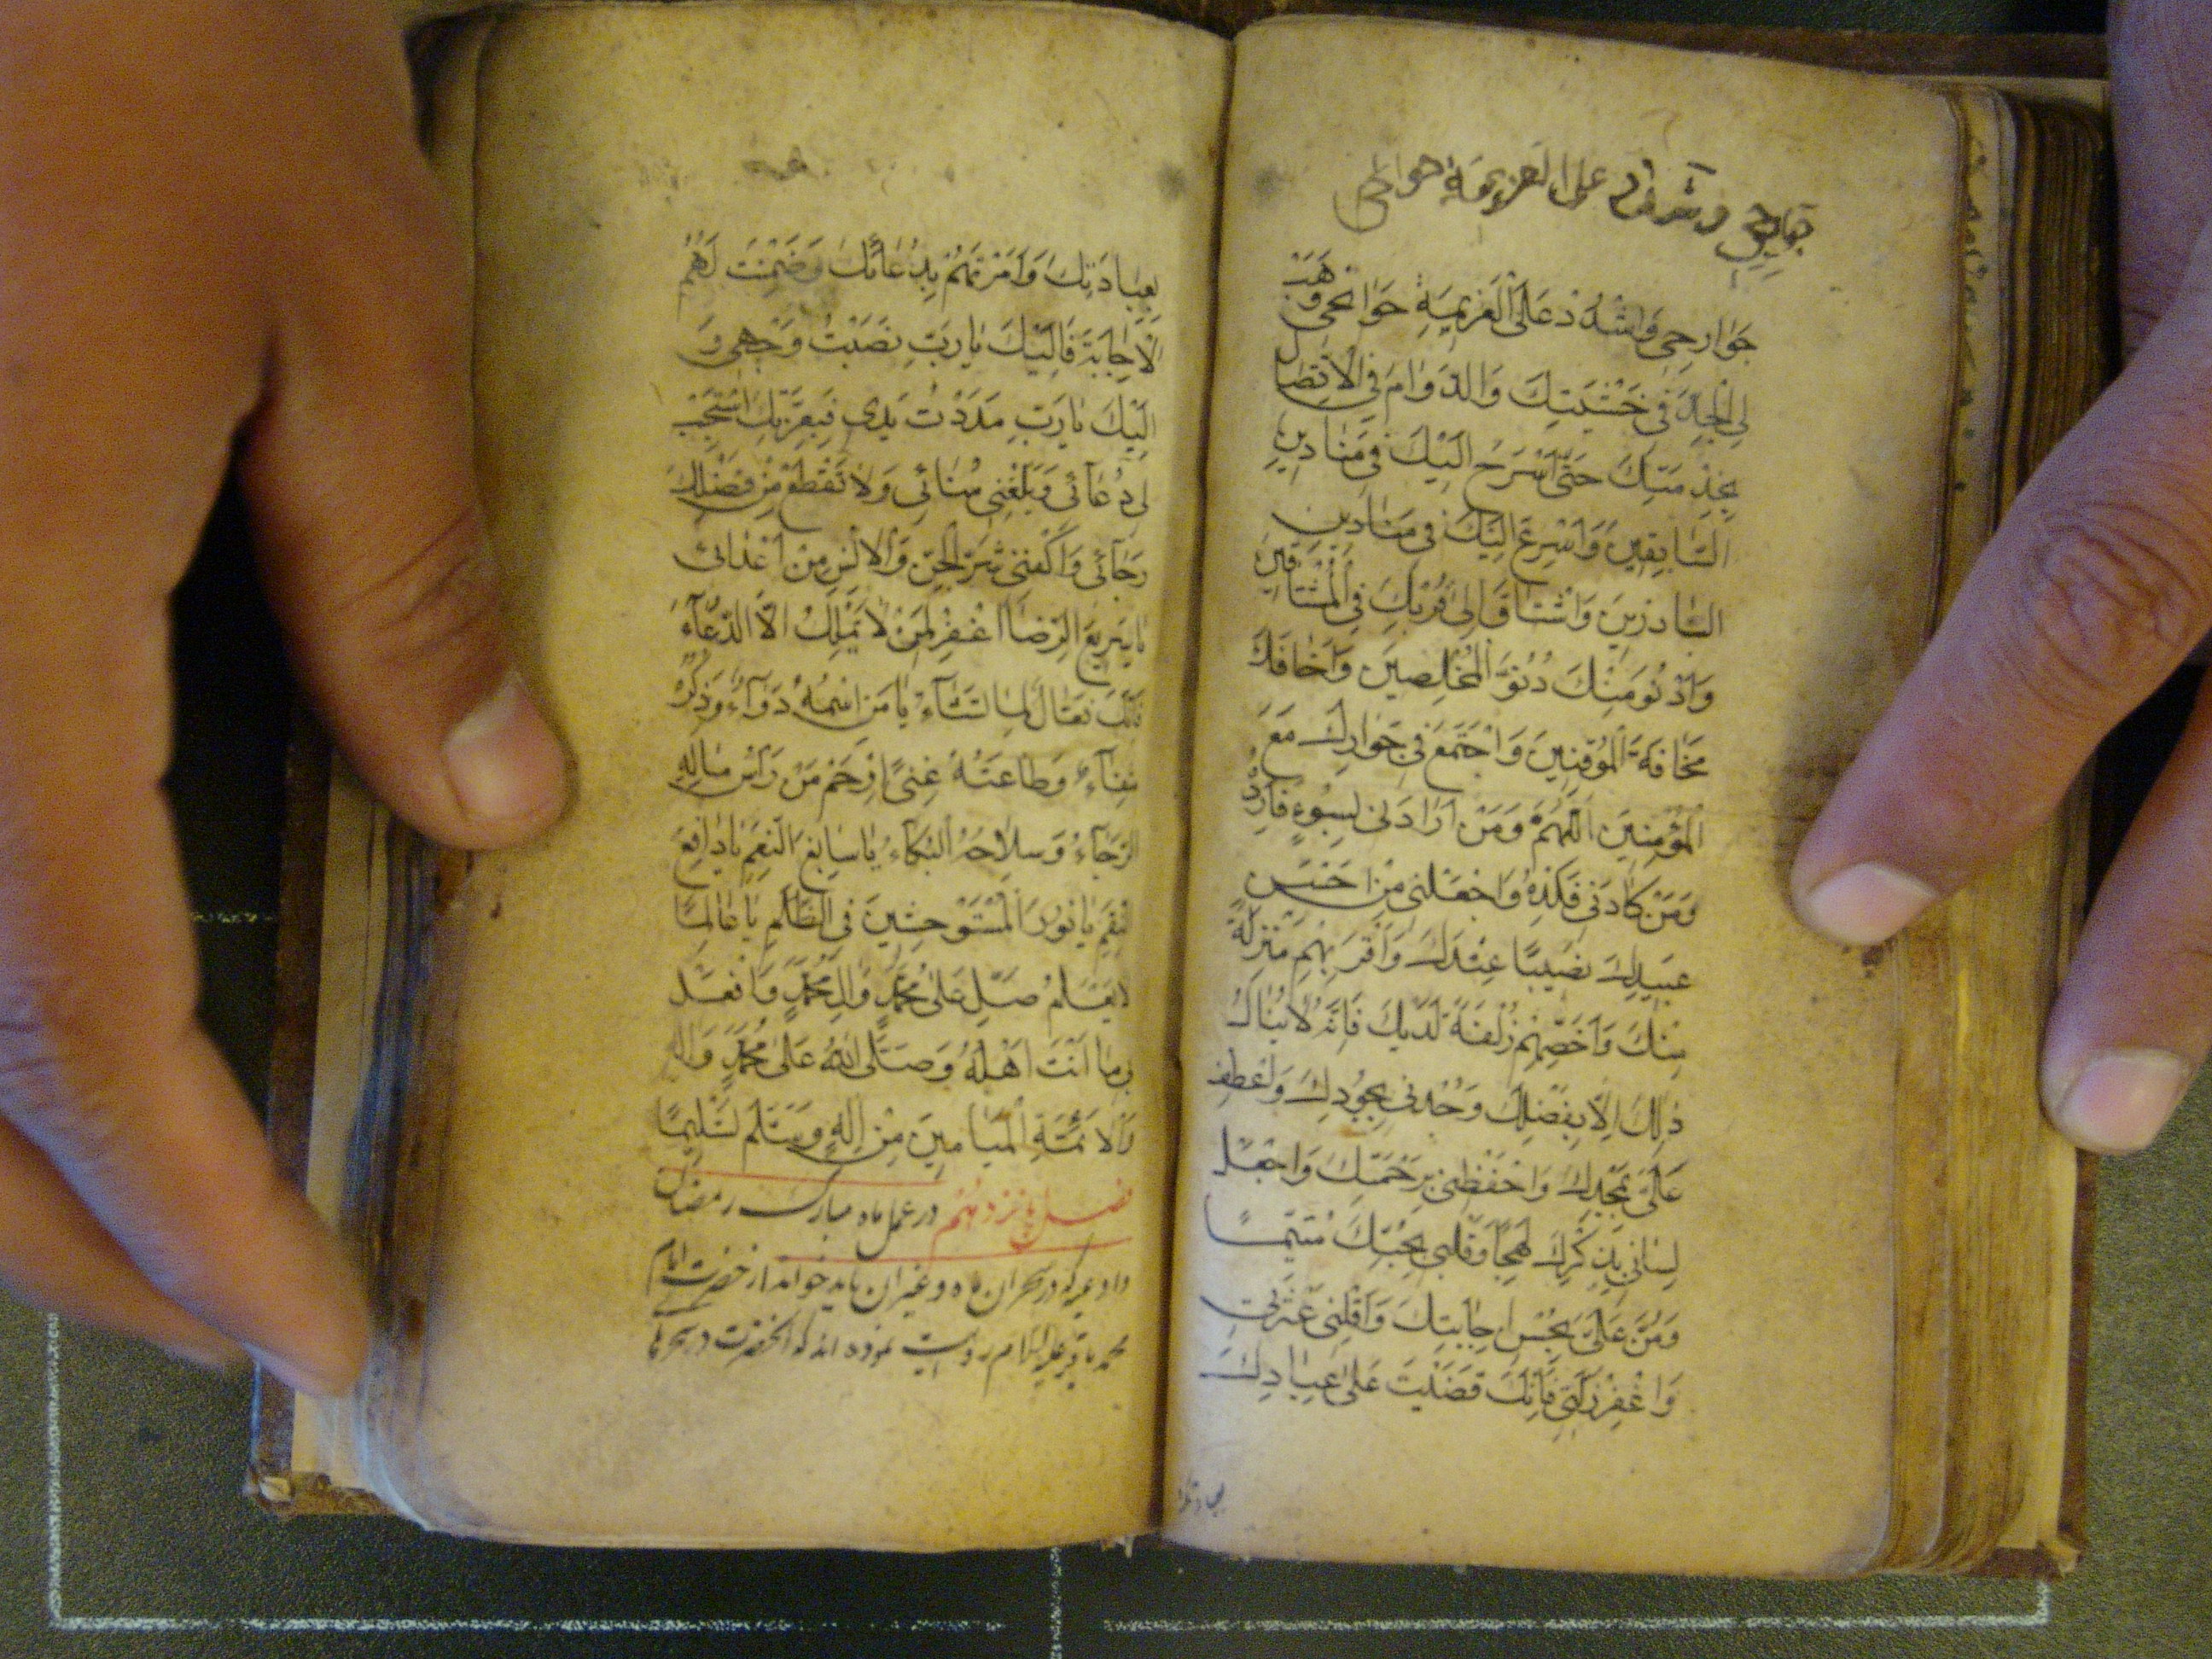 جوارحي وشدد على العزيمة حوايجي
جَوارِحي وَاشْدُدْ عَلَى الْعَزيمَةِ حَوائِجي وَهَبْ
لِيَ الْجِدَّ في خَشْيَتِكَ وَالدَّوامَ فِي الْاِتِّصالِ
بِخِدْمَتِكَ حَتّى اَسْرَحَ اِلَيْكَ في مَيادينِ
السّابِقينَ وَاُسْرِعَ اِلَيْكَ في ميادين
البادِرينَ وَاَشْتاقَ اِلى قُرْبِكَ فِي الْمُشْتاقينَ
وَاَدْنُوَ مِنْكَ دُنُوَّ الْمُخْلِصينَ وَاَخافَكَ
مَخافَةَ الْمُوقِنينَ وَاَجْتَمِعَ في جِوارِكَ مَعَ
الْمُؤْمِنينَ اَللّهُمَّ وَمَنْ اَرادَني بِسُوءٍ فَاَرِدْهُ
وَمَنْ كادَني فَكِدْهُ وَاجْعَلْني مِنْ اَحْسَنِ
عَبيدِكَ نَصيبًا عِنْدَكَ وَاَقْرَبِهِمْ مَنْزِلَةً
مِنْكَ وَاَخَصِّهِمْ زُلْفَةً لَدَيْكَ فَاِنَّهُ لا يُنالُ
ذلِكَ اِلّا بِفَضْلِكَ وَجُدْ لي بِجُودِكَ وَاعْطِفْ
عَلَيَّ بِمَجْدِكَ وَاحْفَظْني بِرَحْمَتِكَ وَاجْعَلْ
لِساني بِذِكْرِكَ لَهِجًا وَقَلْبي بِحُبِّكَ مُتَيَّمًا
وَمُنَّ عَلَيَّ بِحُسْنِ اِجابَتِكَ وَاَقِلْني عَثْرَتي
وَاغْفِرْ زَلَّتي فَاِنَّكَ قَضَيْتَ عَلى عِبادِكَ
بعبادتك
بِعِبادَتِكَ وَاَمَرْتَهُمْ بِدُعائِكَ وَضَمِنْتَ لَهُمُ
الْاِجابَةَ فَاِلَيْكَ يا رَبِّ نَصَبْتُ وَجْهي وَ
اِلَيْكَ يا رَبِّ مَدَدْتُ يَدي فَبِعِزَّتِكَ اسْتَجِبْ
لي دُعآئي وَبَلِّغْني مُنائي وَلا تَقْطَعْ مِنْ فَضْلِكَ
رَجآئي وَاكْفِني شَرَّ الْجِنِّ وَالْاِنْسِ مِنْ اَعْدائي
يا سَريعَ الرِّضا اغْفِرْ لِمَنْ لا يَمْلِكُ اِلَّا الدُّعآءَ
فَاِنَّكَ فَعّالٌ لِما تَشآءُ يا مَنِ اسْمُهُ دَوآءٌ وَذِكْرُهُ
شِفآءٌ وَطاعَتُهُ غِنىً اِرْحَمْ مَنْ رَأْسُ مالِهِ
الرَّجآءُ وَسِلاحُهُ الْبُكآءُ يا سابِغَ النِّعَمِ يا دافِعَ
النِّقَمِ يا نُورَ الْمُسْتَوْحِشينَ فِي الظُّلَمِ يا عالِمًا
لا يُعَلَّمُ صَلِّ عَلى مُحَمَّدٍ وَآلِ مُحَمَّدٍ وَافْعَلْ
بي ما اَنْتَ اَهْلُهُ وَصَلَّى اللهُ عَلى مُحَمَّدٍ وَآلِهِ
وَالْاَئِمَّةِ الْمَيامينَ مِنْ آلِهِ وَسَلَّمَ تَسْليمًا
فصل پانزدهم در عمل ماه مبارک رمضان
وادعیه که در سحر آن ماه وغیر آن باید خواند از حضرت امام
محمد باقر علیه السلام روایت نموده اند که آنحضرت در سحرها